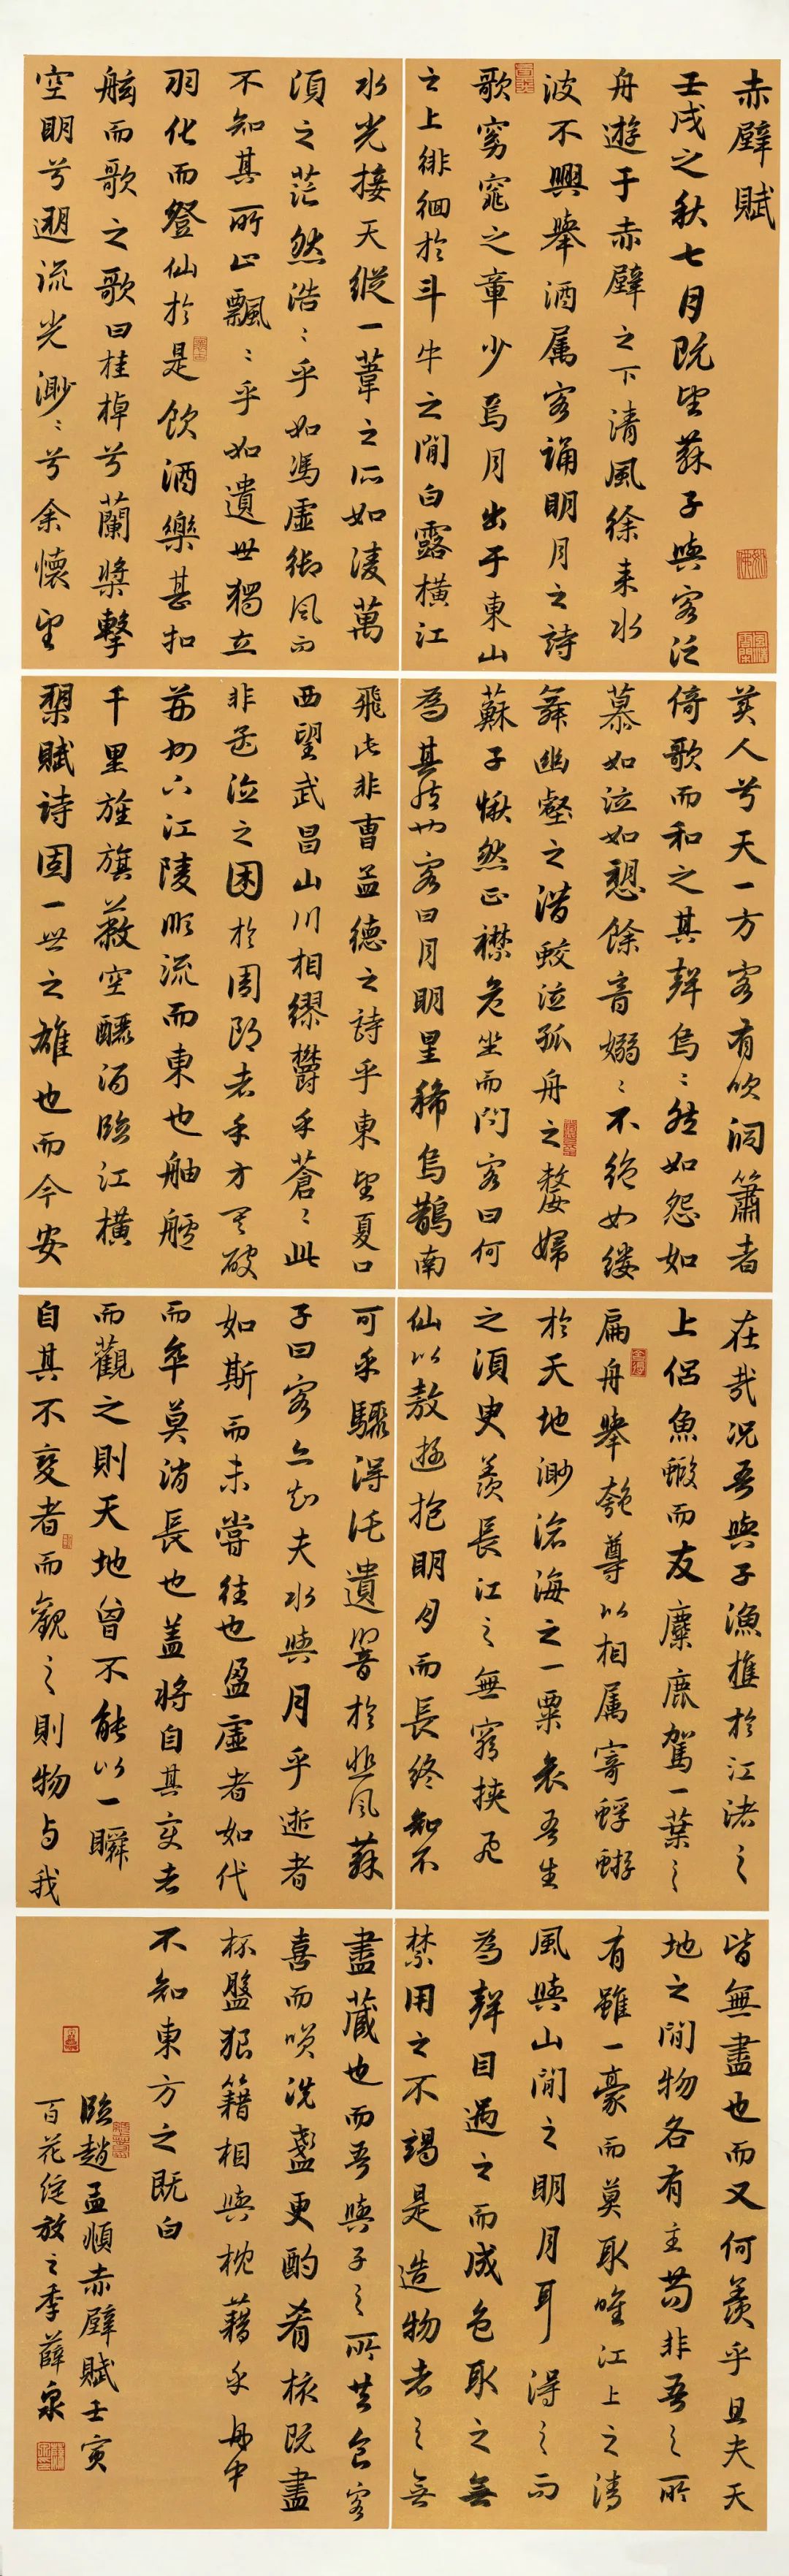 赤壁賦
壬戌之秋七月既望蘇子與客泛
舟遊于赤壁之下清風徐来水
波不興舉酒属客誦明月之詩
歌窈窕之章少焉月出于東山
之上徘徊於斗牛之間白露橫江
水光接天縱一葦之所如淩萬
頃之茫然浩〻乎如馮虛御風而
不知其所止飄〻乎如遺世獨立
羽化而登仙於是飲酒樂甚扣
舷而歌之歌曰桂棹兮蘭槳擊
空明兮遡流光渺〻兮余懷望
美人兮天一方客有吹洞簫者
倚歌而和之其聲烏〻然如怨如
慕如泣如愬餘音嫋〻不絕如縷
舞幽壑之潛蛟泣孤舟之嫠婦
蘇子愀然正襟危坐而問客曰何
為其然也客曰月明星稀烏鵲南
飛此非曹孟德之詩乎東望夏口
西望武昌山川相繆鬱乎蒼〻此
非孟德之困於周郎者乎方其破
荊州下江陵順流而東也舳艫
千里旌旗蔽空釃酒臨江橫
槊賦詩固一世之雄也而今安
在哉況吾與子漁樵於江渚之
上侶魚蝦而友麋鹿駕一葉之
扁舟舉匏尊以相属寄蜉蝣
於天地渺滄海之一粟哀吾生
之須臾羨長江之無窮挾飛
仙以敖遊抱明月而長終知不
可乎驟得託遺響於悲風蘇
子曰客亦知夫水與月乎逝者
如斯而未嘗往也盈虛者如代
而卒莫消長也蓋將自其变者
而觀之則天地曾不能以一瞬
自其不變者而觀之則物与我
皆無盡也而又何羨乎且夫天
地之間物各有主苟非吾之所
有雖一豪而莫取唯江上之清
風與山間之明月耳得之而
為聲目遇之而成色取之無
禁用之不竭是造物者之無
盡藏也而吾與子之所共食客
喜而笑洗盞更酌肴核既盡
杯盤狼籍相與枕藉乎舟中
不知東方之既白
臨趙孟頫赤壁賦壬寅
百花綻放之季薛泉